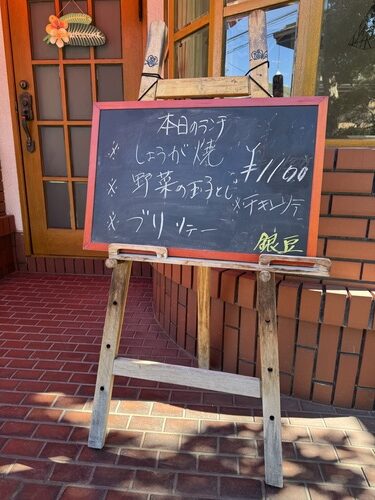 本日のランチ
※ しょうが焼
¥1100
※ 野菜の玉子とじ
※チキンソテー
※ ブリソテー
銀豆